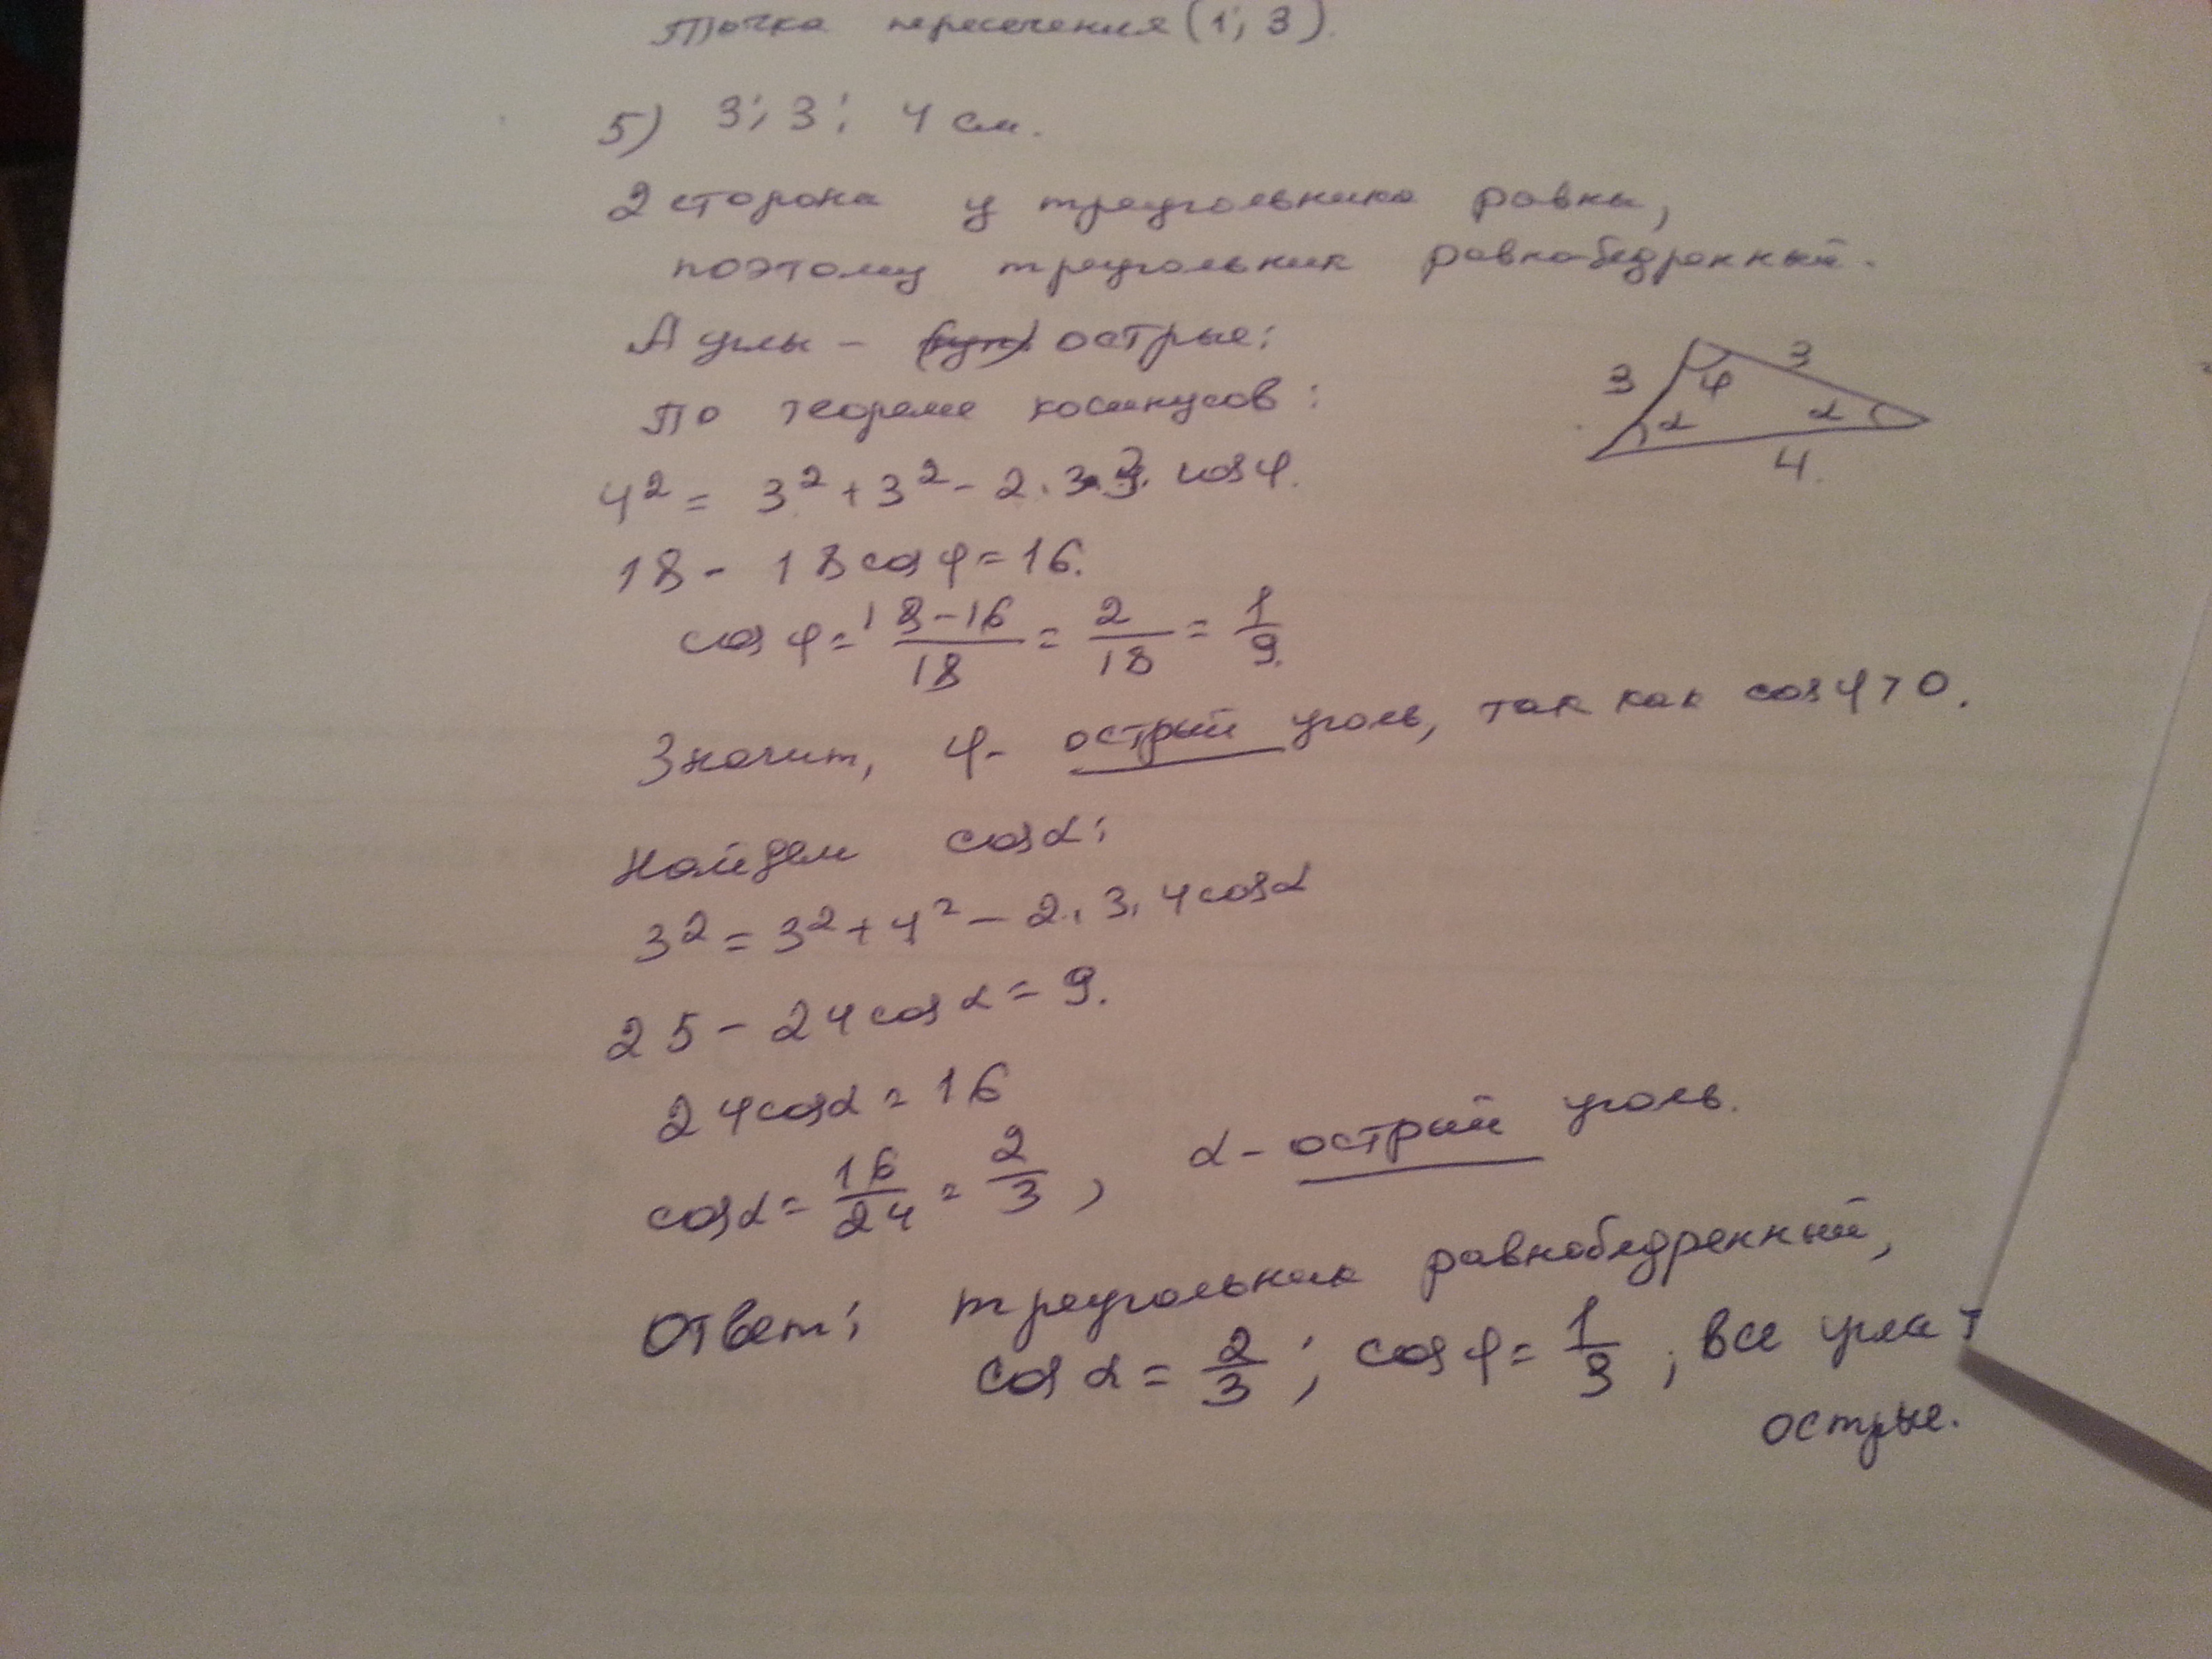 Точка пересечения (1; 3).
5) 3; 3; 4 см.
2 стороны у треугольника равны,
поэтому треугольник равнобедренный.
А углы - острые:
По теореме косинусов:
3
3
φ
α
α
4
4² = 3² + 3² - 2·3·3·cosφ.
18 - 18cosφ = 16.
cosφ = 18-16/18 = 2/18 = 1/9.
Значит, φ - острый уголь, так как cosφ>0.
Найдем cosα:
3² = 3² + 4² - 2·3·4cosα
25 - 24cosα = 9.
24cosα = 16
cosα = 16/24 = 2/3, α - острый уголь.
Ответ: треугольник равнобедренный,
cosα = 2/3; cosφ = 1/9; все углы
острые.